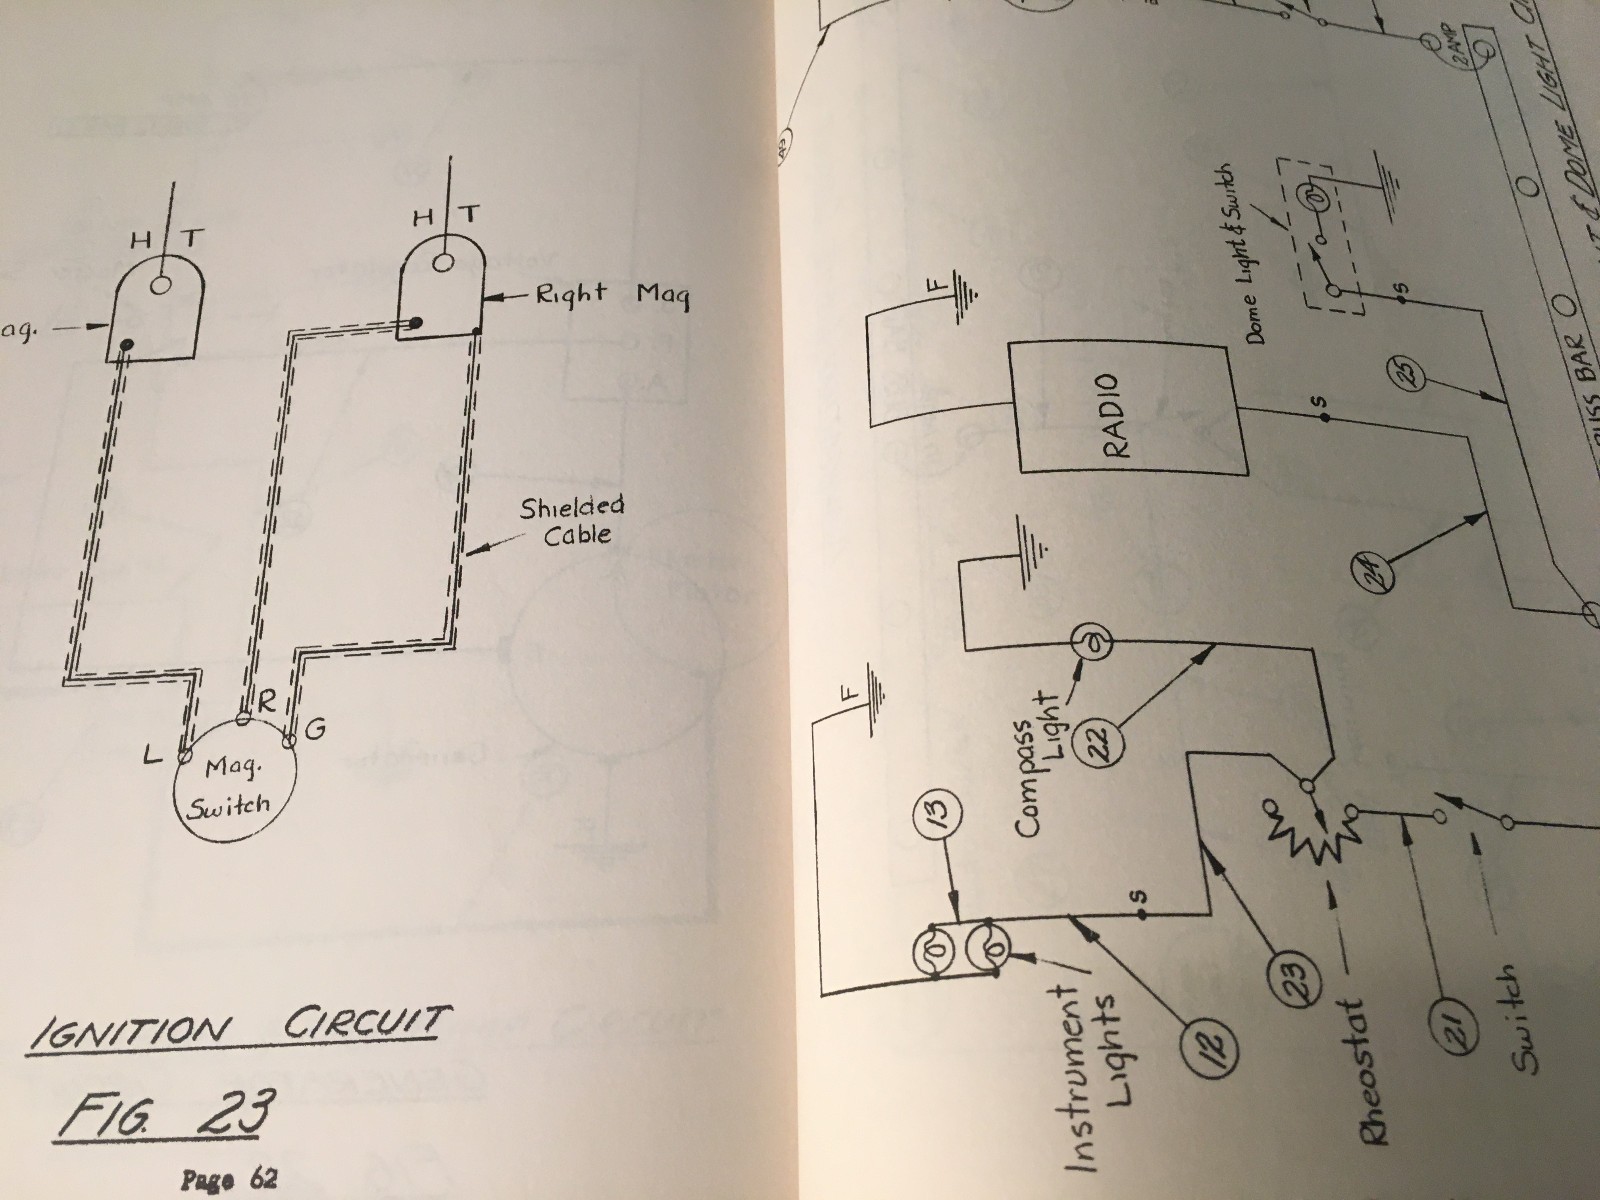 H T
H T
ag.
Right Mag
Shielded
Cable
R
L
G
Mag.
Switch
IGNITION CIRCUIT
FIG. 23
Page 62
2 AMP
DOME LIGHT
& DOME LIGHT
Dome Light & Switch
S
F
RADIO
S
25
24
BUSS BAR
F
Compass
Light
22
13
S
Instrument
Lights
12
23
Rheostat
21
Switch